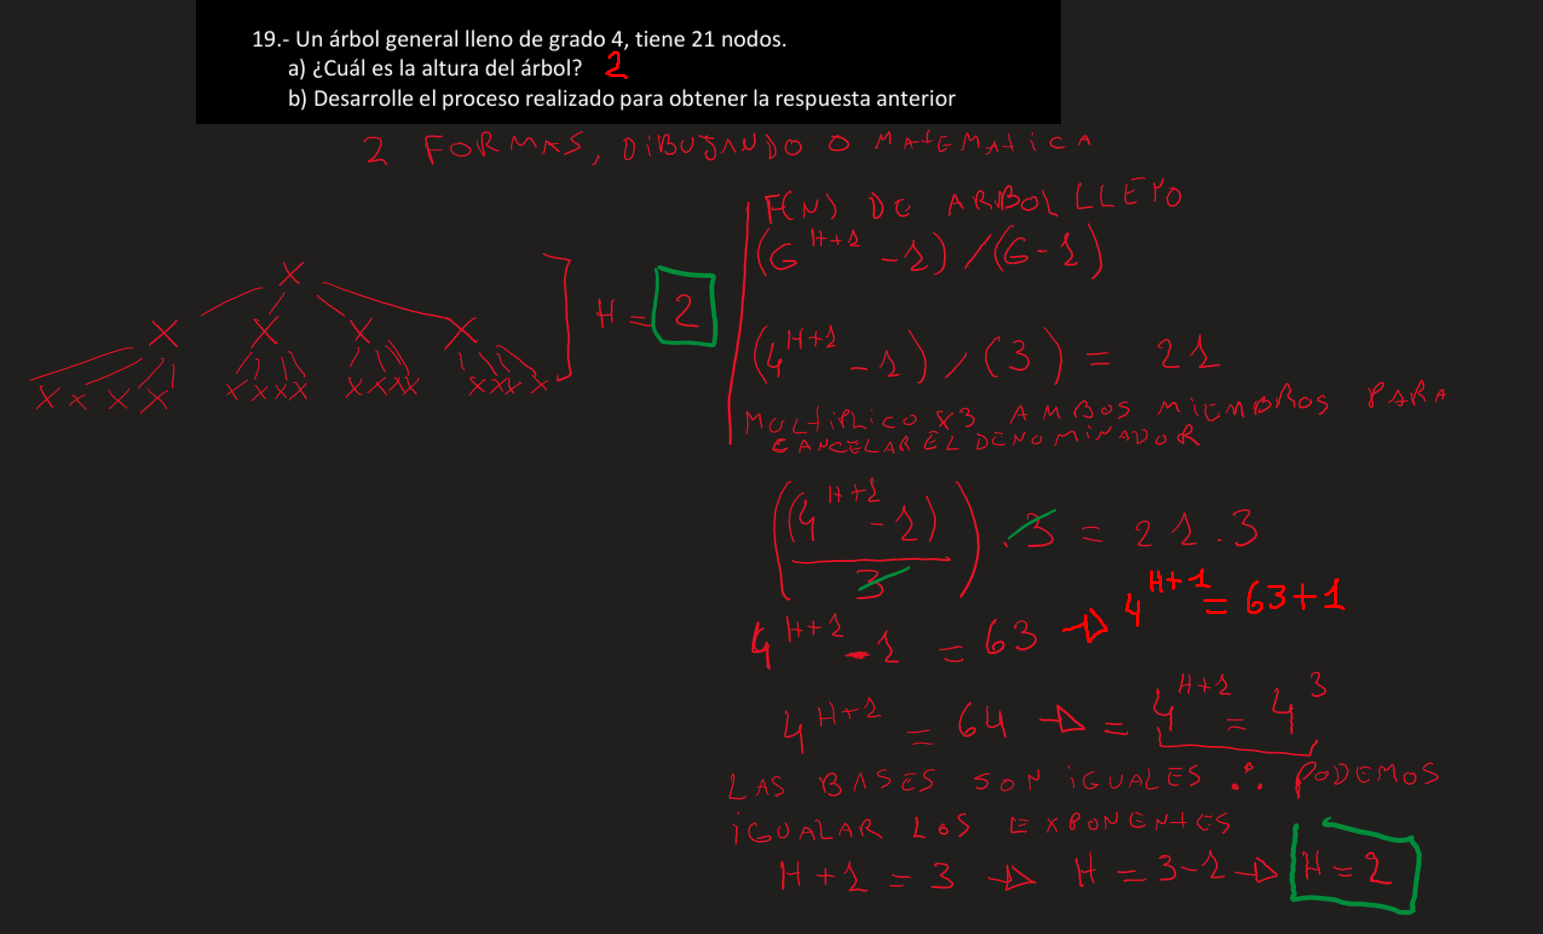 19.- Un árbol general lleno de grado 4, tiene 21 nodos.
a) ¿Cuál es la altura del árbol? 2
b) Desarrolle el proceso realizado para obtener la respuesta anterior
2 FORMAS, DIBUJANDO O MATEMATICA
F(N) DE ARBOL LLENO
(G^H+1 - 1) / (G-1)
X
X X X X
X X X X X X X X X X X X X X X X
H = 2
(4^H+1 - 1) / (3) = 21
MULTIPLICO X3 AMBOS MIEMBROS PARA
CANCELAR EL DENOMINADOR
((4^H+1 - 1) / 3) . 3 = 21.3
4^H+1 - 1 = 63 → 4^H+1 = 63+1
4^H+1 = 64 → = 4^H+1 = 4^3
LAS BASES SON iGUALES ∴ PODEMOS
iGUALAR LOS EXPONENTES
H+1 = 3 → H = 3-1 → H = 2